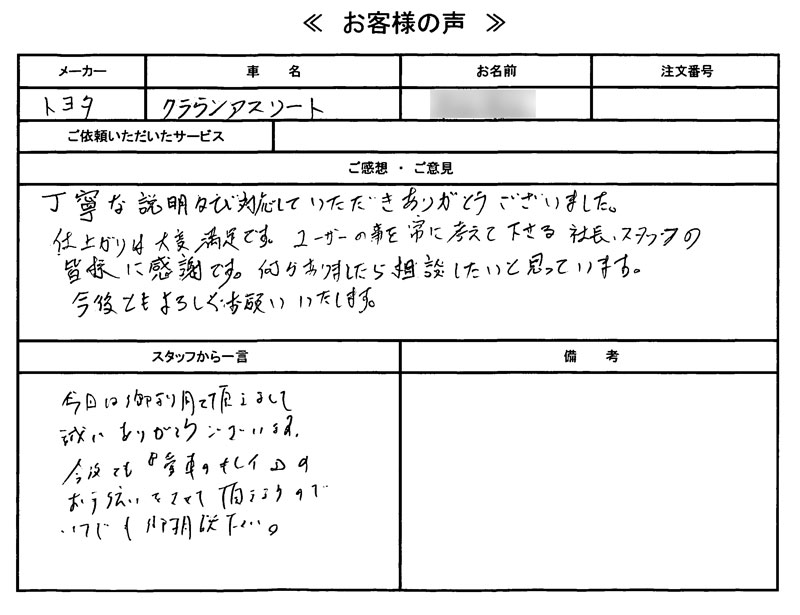 ≪ お客様の声 ≫
メーカー 車 名 お名前 注文番号
トヨタ クラウンアスリート
ご依頼いただいたサービス
ご感想・ご意見
丁寧な説明及び対応していただきありがとうございました。
仕上がりは大変満足です。ユーザーの事を常に考えて下さる社長、スタッフの
皆様に感謝です。何かありましたら相談したいと思っています。
今後ともよろしくお願いいたします。
スタッフから一言 備 考
今回は御利用て頂きまして
誠にありがとうございます。
今後も愛車のキレイの
お手伝いをさせて頂きますので
いつでも御相談下さい。